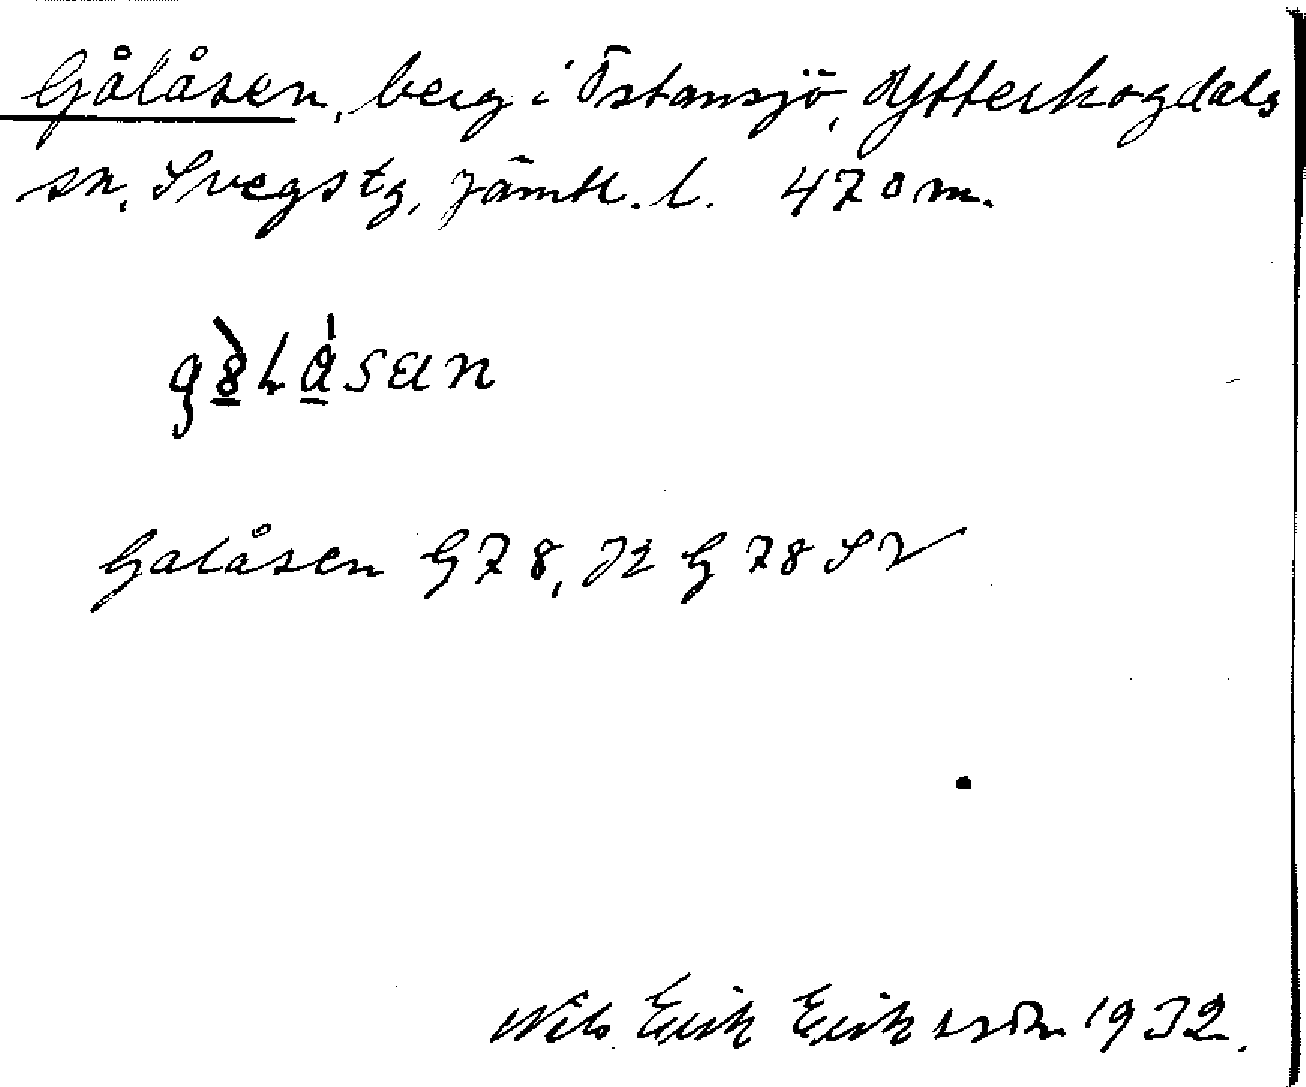 Gålåsen, berg i Östansjö, Ytterhogdals
sn, Svegs tg, Jämtl. l. 470 m.
Galåsen G 78, J2 G 78 SV
Nils Erik Eriksson 1932.